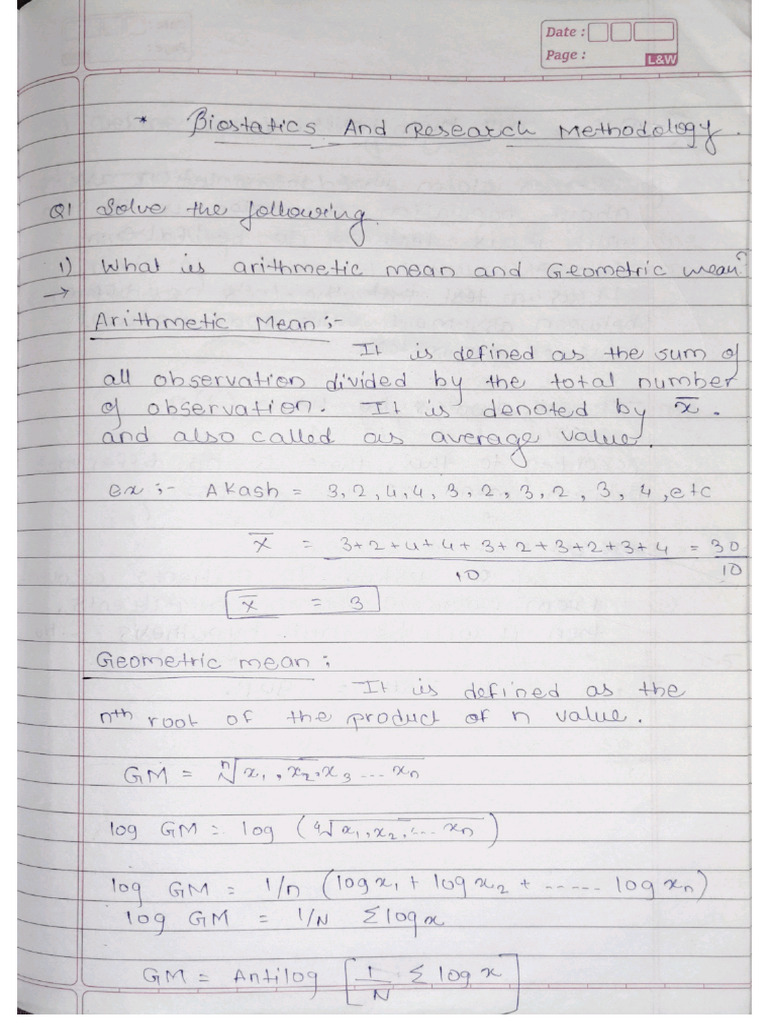 Date :
Page :
L&W
* Biostatics And Research Methodology.
Q1 Solve the following.
1) What is arithmetic mean and Geometric mean?
→
Arithmetic Mean :-
It is defined as the sum of
all observation divided by the total number
of observation. It is denoted by x̅.
and also called as average value.
ex :- Akash = 3, 2, 4, 4, 3, 2, 3, 2, 3, 4, etc
x̅ = 3+2+4+4+3+2+3+2+3+4 = 30
10 10
x̅ = 3
Geometric mean :
It is defined as the
nth root of the product of n value.
GM = ⁿ√x₁, x₂, x₃ ... xₙ
log GM = log (ⁿ√x₁, x₂, ... xₙ)
log GM = 1/n (log x₁ + log x₂ + ...... log xₙ)
log GM = 1/N Σ log x
GM = Antilog [1/N Σ log x]